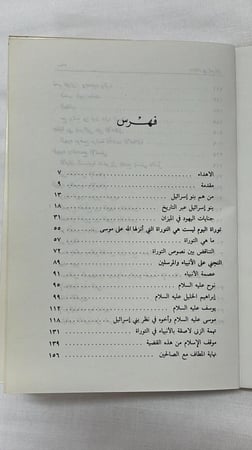 فهرس
الاهداء ... ٧
مقدمة ... ٩
من هم بنو إسرائيل ... ١٣
بنو إسرائيل عبر التاريخ ... ١٨
جنايات اليهود في الميزان ... ٣١
توراة اليوم ليست هي التوراة التي أنزلها الله على موسى ... ٥٥
ما هي التوراة ... ٥٧
التناقض بين نصوص التوراة ... ٧٢
التجني على الأنبياء والمرسلين ... ٨٩
عصمة الأنبياء ... ٩١
نوح عليه السلام ... ٩٥
إبراهيم الخليل عليه السلام ... ٩٩
يوسف عليه السلام ... ١١٢
موسى عليه السلام وأخوه في نظر بني إسرائيل ... ١١٨
تهمة الزنى لاصقة بالأنبياء في التوراة ... ١٣١
موقف الإسلام من هذه القضية ... ١٣٩
نهاية المطاف مع الصالحين ... ١٥٦